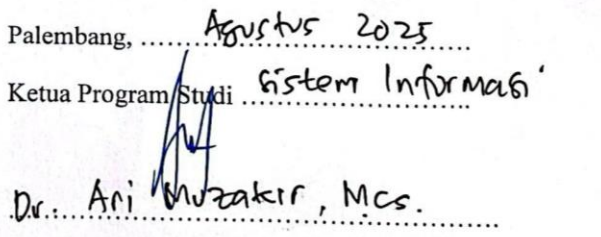 Palembang, ...... Agustus 2025
Ketua Program Studi Sistem Informasi
Dr. Ari Muzakir, Mcs.